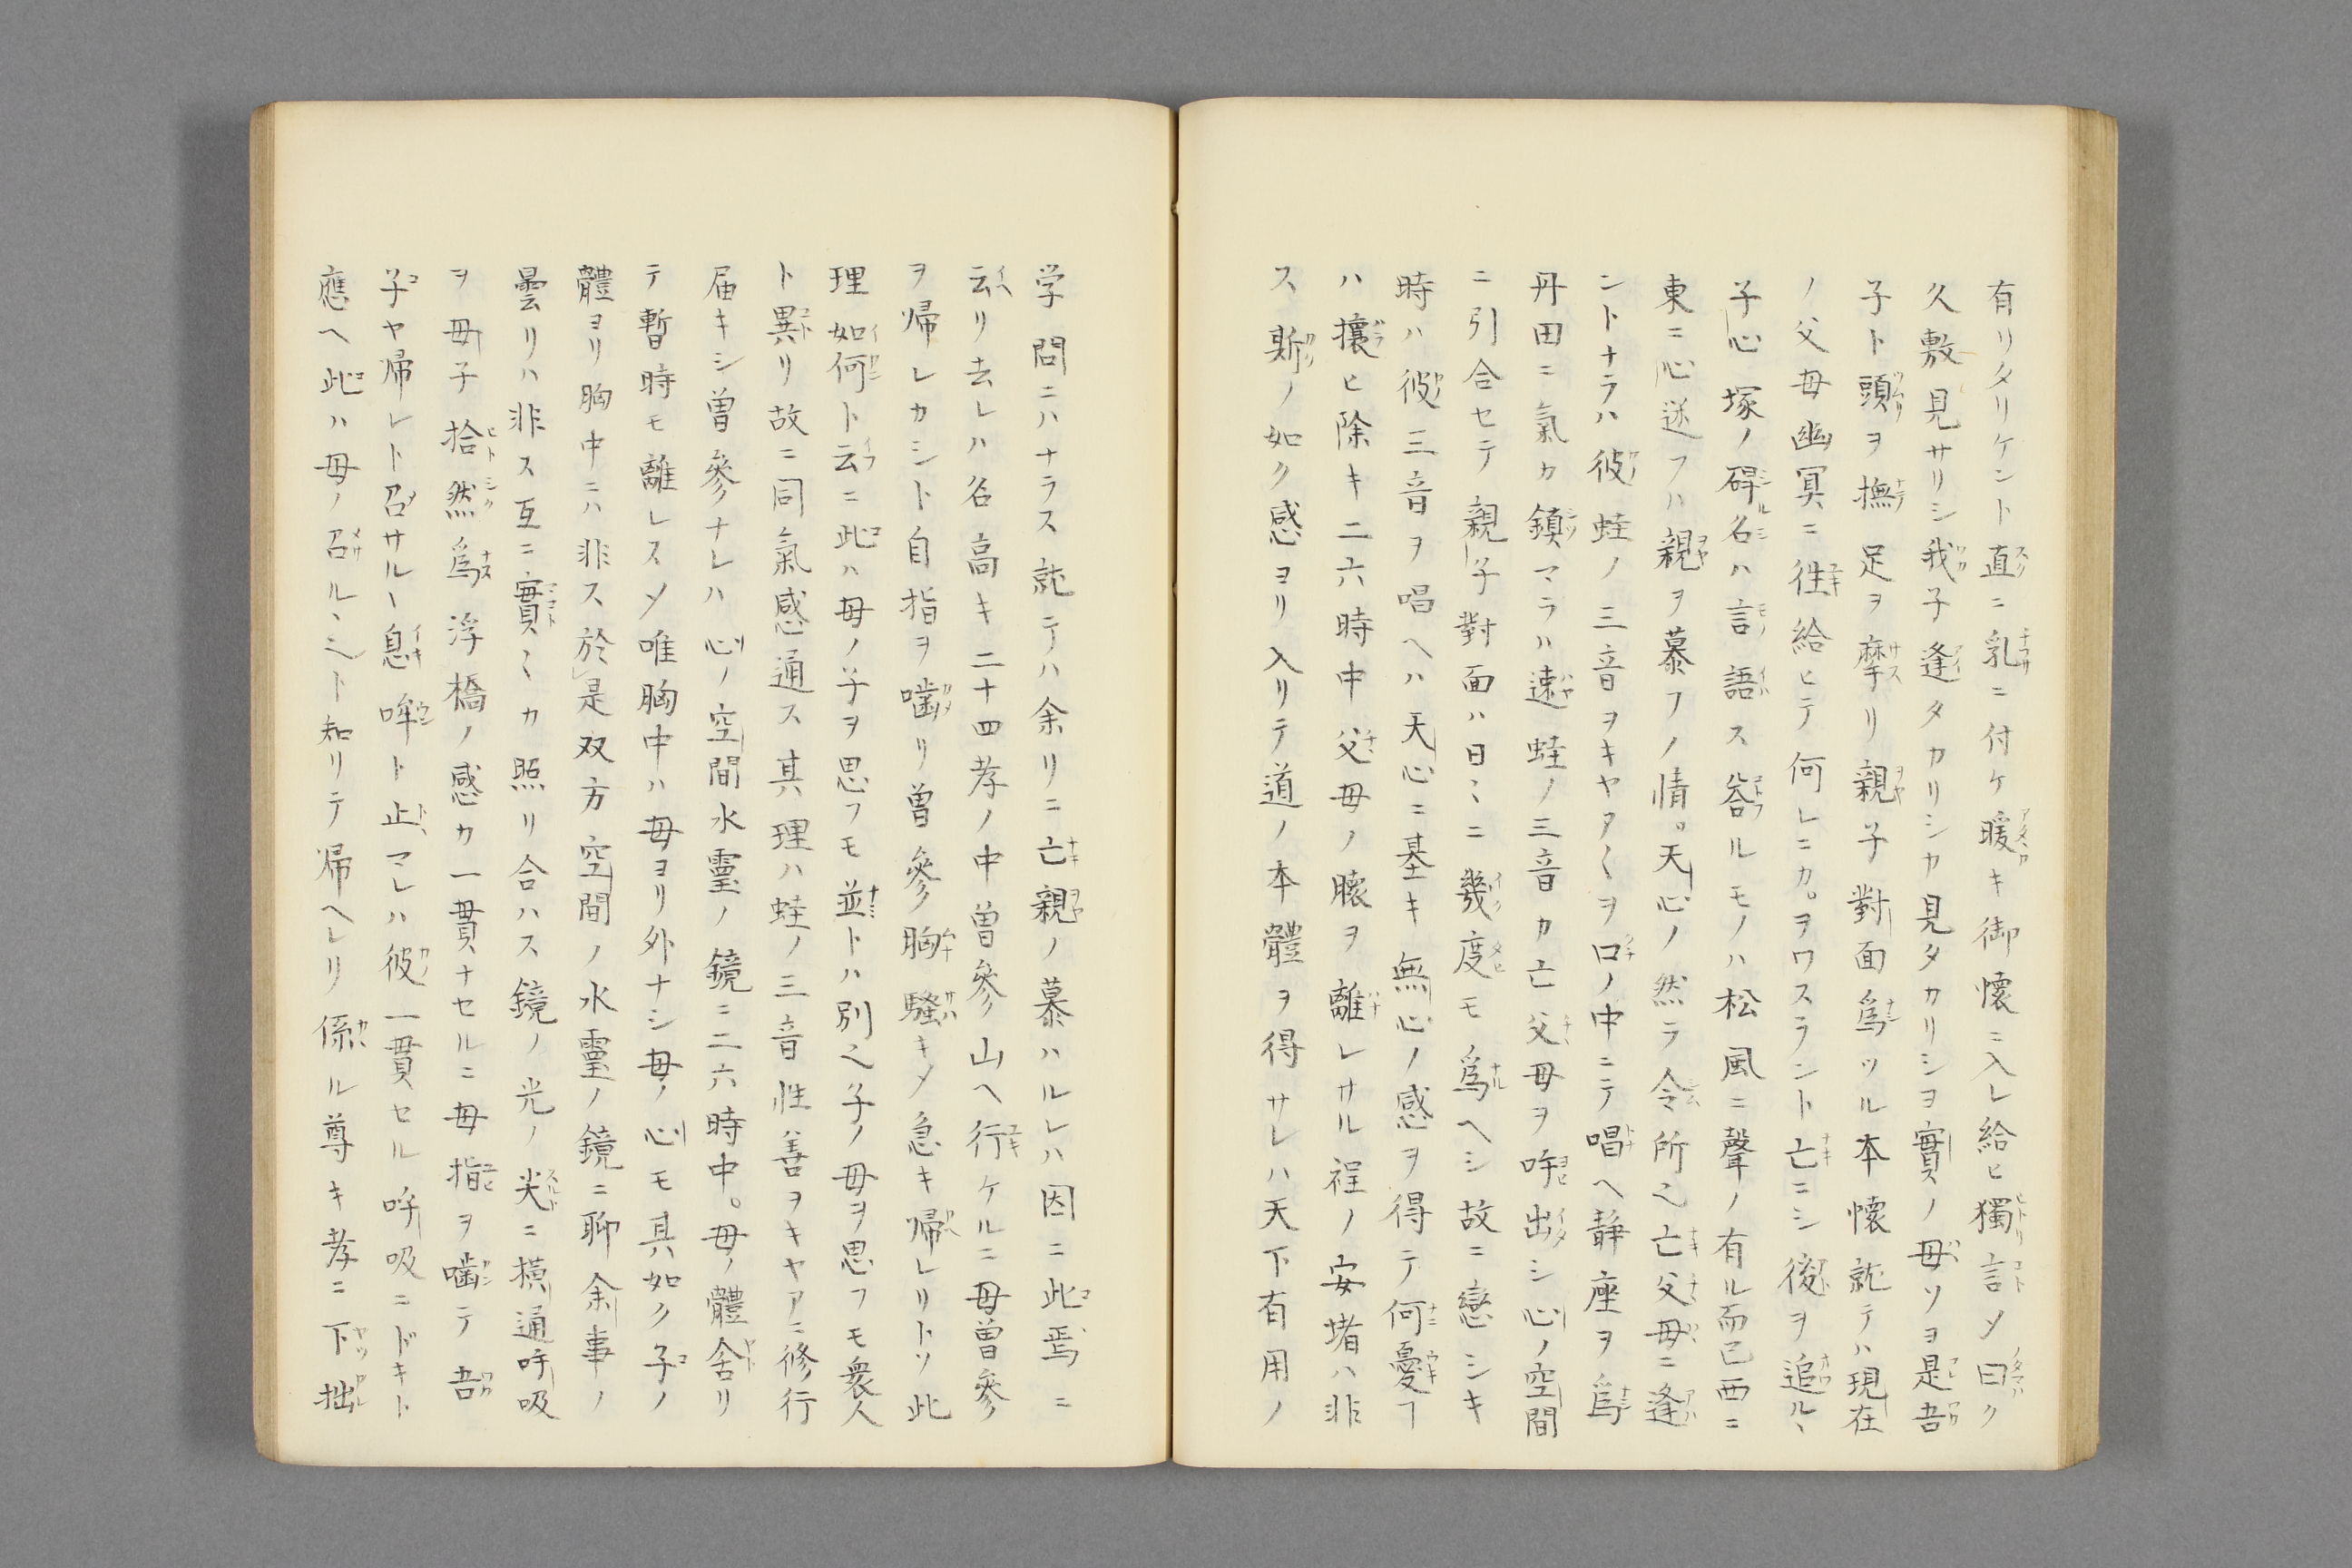 有リタリケント直ニ乳ニ付ケ暖キ御懐ニ入レ給ヒ獨言〆曰ク
久敷見サリシ我子逢タカリシカ見タカリシヲ實ノ母ソヨ是吾
子ト頭ヲ撫足ヲ摩リ親子對面爲ツル本懐就テハ現在
ノ父母幽冥ニ徃給ヒテ何レニカ。ヲワスラント亡ニシ後ヲ追ル丶
子心塚ノ碍名ハ言語ス答ルモノハ松風ニ聲ノ有ル而已西ニ
東ニ心迷フハ親ヲ慕フノ情。天心ノ然ラ令所之亡父母ニ逢
ントナラハ彼蛙ノ三音ヲキヤアクヲ口ノ中ニテ唱ヘ静座ヲ爲
丹田ニ氣カ鎮マラハ速蛙ノ三音カ亡父母ヲ呼出シ心ノ空間
ニ引合セテ親子對面ハ日〻ニ幾度モ爲ヘシ故ニ戀シキ
時ハ彼三音ヲ唱ヘハ天心ニ基キ無心ノ感ヲ得テ何憂フ
ハ攘ヒ除キ二六時中父母ノ懐ヲ離レサル裎ノ安堵ハ非
ス斯ノ如ク感ヨリ入リテ道ノ本體ヲ得サレハ天下有用ノ
学問ニハナラス就テハ余リニ亡親ノ慕ハルレハ因ニ此焉ニ
云リ去レハ名高キ二十四孝ノ中曽參山ヘ行ケルニ母曽參
ヲ帰レカシト自指ヲ嚙リ曽參胸騒キ〆急キ帰レリトソ此
理如何ト云ニ此ハ母ノ子ヲ思フモ並トハ別之子ノ母ヲ思フモ衆人
ト異リ故ニ同氣感通ス其理ハ蛙ノ三音性善ヲキヤアニ修行
届キシ曽參ナレハ心ノ空間水靈ノ鏡ニ二六時中。母ノ體舎リ
テ暫時モ離レス〆唯胸中ハ母ヨリ外ナシ母ノ心モ其如ク子ノ
體ヨリ胸中ニハ非ス於是双方空間ノ水靈ノ鏡ニ聊余事ノ
曇リハ非ス互ニ實〻カ照リ合ハス鏡ノ光ノ尖ニ横通呼吸
ヲ母子拾然爲浮橋ノ感カ一貫ナセルニ母指ヲ嚙テ吾
子ヤ帰レト召サル丶息哞ト止マレハ彼一貫セル呼吸ニドキト
應ヘ此ハ母ノ召ル丶之ト知リテ帰ヘレリ係ル尊キ孝ニ下拙